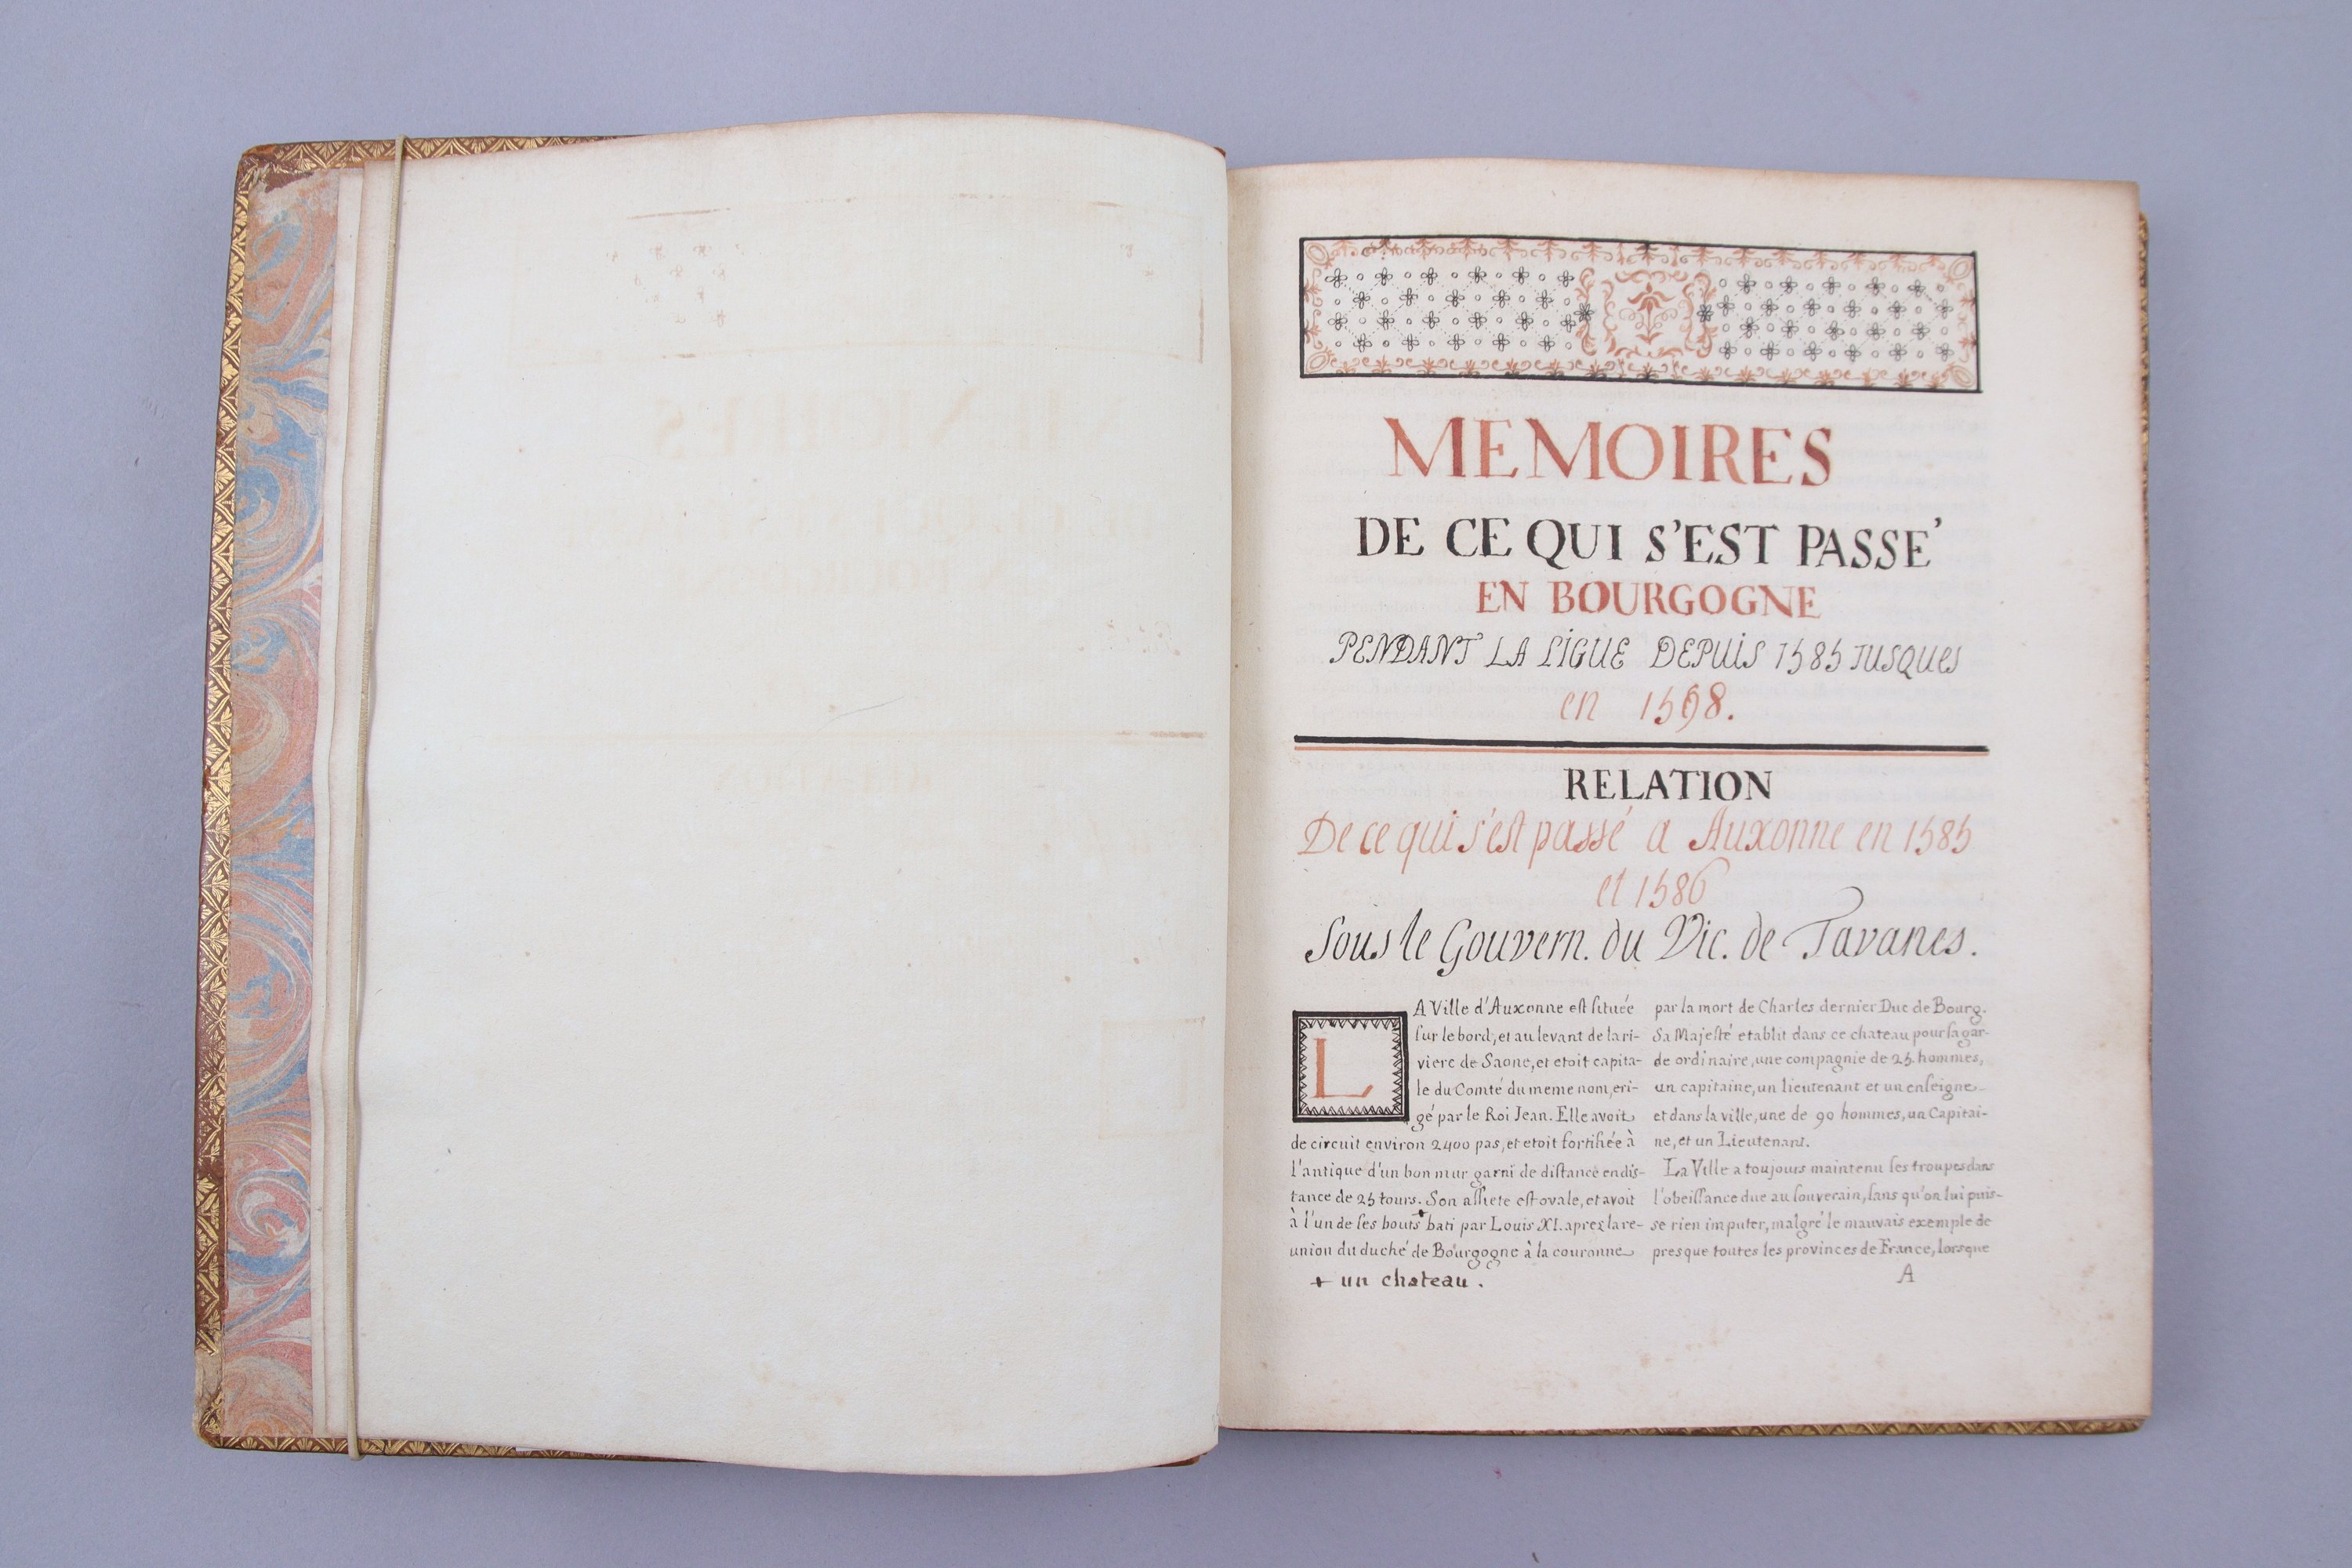 MEMOIRES
DE CE QUI S'EST PASSE'
EN BOURGOGNE
PENDANT LA LIGUE DEPUIS 1585 JUSQUES
en 1598.
RELATION
De ce qui s'est passé a Auxonne en 1585
et 1586
Sous le Gouvern. du Vic. de Tavanes.
LA Ville d'Auxonne est située
sur le bord, et au levant de la ri-
viere de Saone, et etoit capita-
le du Comté du meme nom, eri-
gé par le Roi Jean. Elle avoit
de circuit environ 2400 pas, et etoit fortifiée à
l'antique d'un bon mur garni de distance en dis-
tance de 25 tours. Son assiete est ovale, et avoit
à l'un de ses bouts + bati par Louis XI. aprez la re-
union du duché de Bourgogne à la couronne
+ un chateau.
par la mort de Charles dernier Duc de Bourg.
Sa Majesté etablit dans ce chateau pour sa gar-
de ordinaire, une compagnie de 25. hommes,
un capitaine, un lieutenant et un enseigne
et dans la ville, une de 90 hommes, un Capitai-
ne, et un Lieutenant.
La Ville a toujours maintenu ses troupes dans
l'obeissance due au souverain, sans qu'on lui puis-
se rien imputer, malgré le mauvais exemple de
presque toutes les provinces de France, lorsque
A